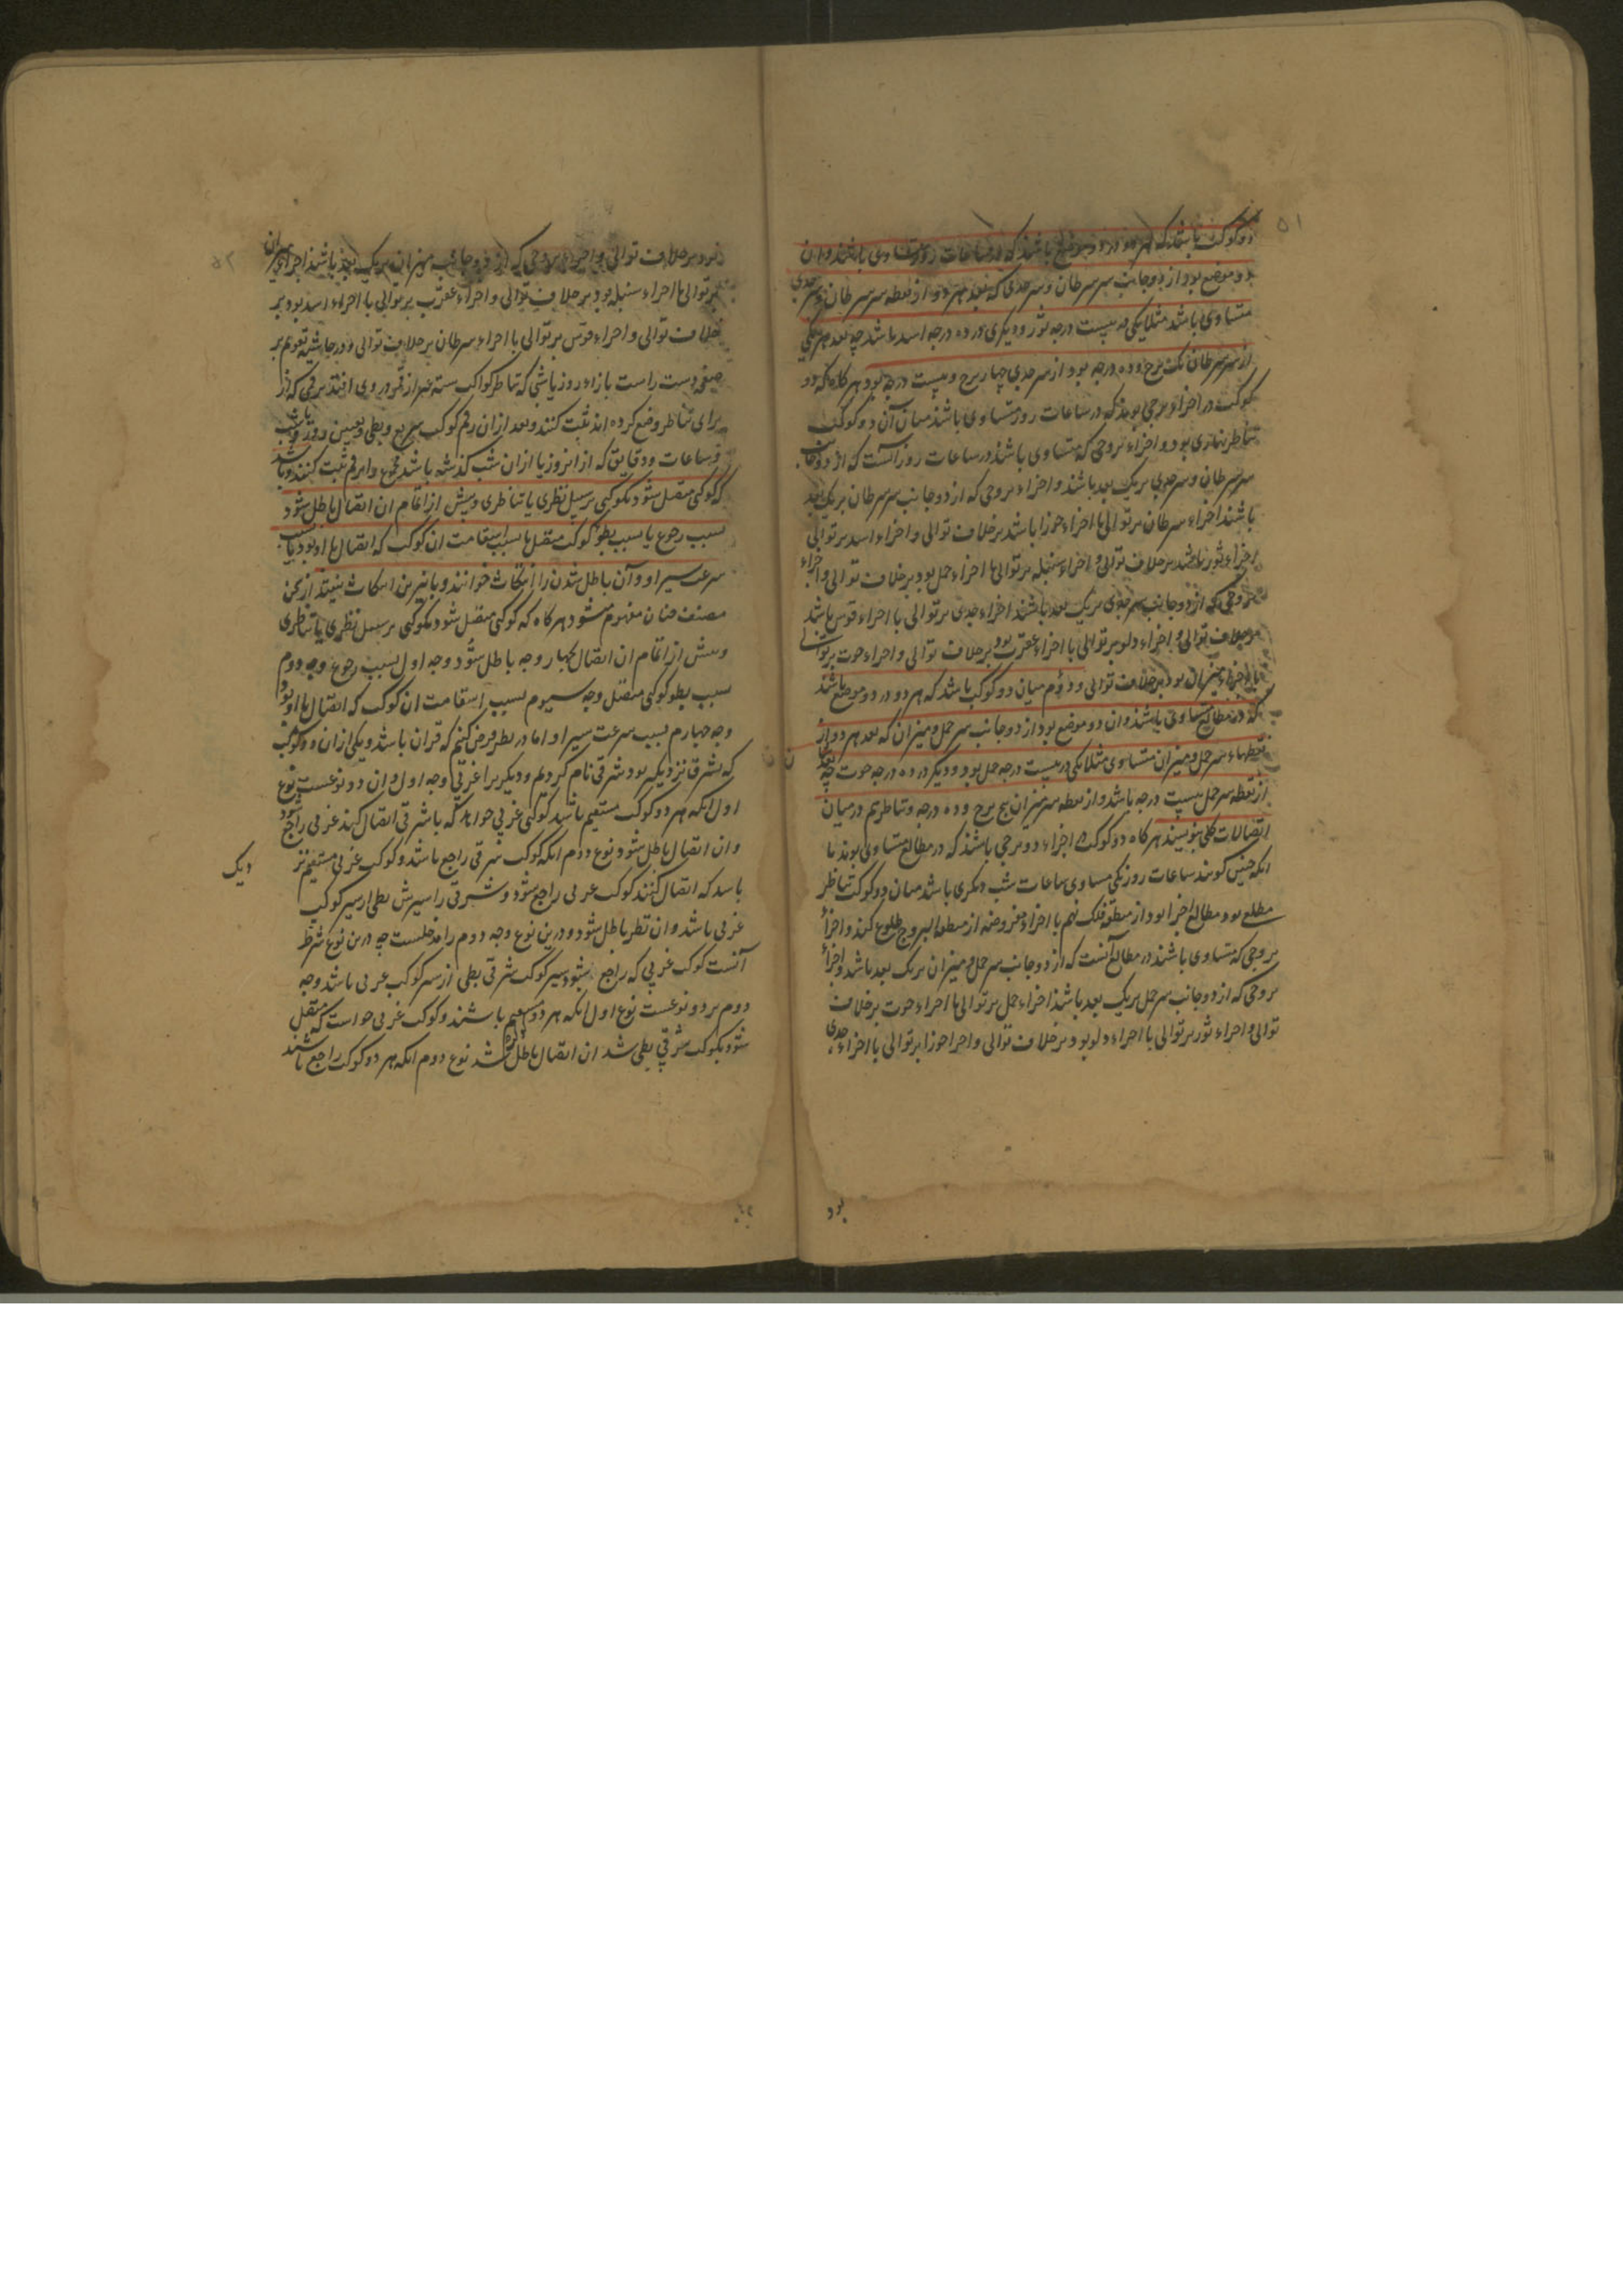 ۵۱
دو کوکب باشد که هر دو در دو موضع باشند که در ساعات روز متساوی باشند و ان
دو موضع بود از دو جانب سر سرطان و سر جدی که بعد هر دو از نقطه سر سرطان و سر جدی
متساوی باشد مثلا یکی در بیست درجه ثور و دیگری در ده درجه اسد باشد چه بعد هر یکی
از سر سرطان یک برج و ده درجه بود و از سر جدی چهار برج و بیست درجه بود و هر کاه که دو
کوکب در اجزاء بروجی بوند که در ساعات روز متساوی باشند میان آن دو کوکب
تناظر زمانی بود و اجزاء بروجی که متساوی باشند در ساعات روز آنست که از دو جانب
سر سرطان و سر جدی بر یک بعد باشند و اجزاء بروجی که از دو جانب سر سرطان بر یک بعد
باشند اجزاء سرطان بر توالی با اجزاء جوزا باشد بر خلاف توالی و اجزاء اسد بر توالی
با اجزاء ثور باشد بر خلاف توالی و اجزاء سنبله بر توالی با اجزاء حمل بود بر خلاف توالی و اجزاء
بروجی که از دو جانب سر جدی بر یک بعد باشند اجزاء جدی بر توالی با اجزاء قوس باشد
بر خلاف توالی و اجزاء دلو بر توالی با اجزاء عقرب بود بر خلاف توالی و اجزاء حوت بر توالی
با اجزاء میزان بود بر خلاف توالی و دوم میان دو کوکب باشد که هر دو در دو موضع باشند
که در مطالع متساوی باشند و ان دو موضع بود از دو جانب سر حمل و میزان که بعد هر دو از
نقطهاء سر حمل و میزان متساوی مثلا یکی در بیست درجه حمل بود و دیگر در ده درجه حوت چه
از نقطه سر حمل بیست درجه باشد و از نقطه سر میزان پنج برج و ده درجه و تناظر هم در میان
اتصالات کلی بنویسند هر کاه دو کوکب در اجزاء دو برجی باشند که در مطالع متساوی بوند یا
انکه چنین کویند ساعات روز یکی مساوی ساعات شب دیکری باشد میان دو کوکب تناظر
مطلعی بود و مطالع اجزا بود از منطقه فلک نهم با اجزاء مفروضه از منطقة البروج طلوع کند و اجزاء
بروجی که متساوی باشند در مطالع آنست که از دو جانب سر حمل و میزان بر یک بعد باشد و اجزاء
بروجی که از دو جانب سر حمل بر یک بعد باشند اجزاء حمل بر توالی با اجزاء حوت بر خلاف
توالی و اجزاء ثور بر توالی با اجزاء دلو بود بر خلاف توالی و اجزا جوزا بر توالی با اجزاء جدی
بود
۵۲
بود بر خلاف توالی و اجزاء بروجی که از دو جانب میزان بر یک بعد باشند اجزاء میزان
بر توالی با اجزاء سنبله بود بر خلاف توالی و اجزاء عقرب بر توالی با اجزاء اسد بود بر
خلاف توالی و اجزاء قوس بر توالی با اجزاء سرطان بر خلاف توالی و در حاشیه تقویم بر
صفحه دست راست بازاء روز یا شبی که تناظر کواکب سته غیر از قمر در وی افتد برقمی که از
برای تناظر وضع کرده اند ثبت کنند و بعد از ان رقم کوکب سریع و بطی و تعیین روز و یا شب
و ساعات و دقایق که از انروز یا از ان شب کذشته باشد مجموع را برقم ثبت کنند و باشد
که کوکبی متصل شود بکوکبی بر سبیل نظری یا تناظری و پیش از اتمام ان اتصال باطل شود
بسبب رجوع یا بسبب بطو کوکب متصل یا بسبب استقامت ان کوکب که اتصال با او بود یا بسبب
سرعت سیر او و آن باطل شدن را انتکاث خوانند
مصنف چنان مفهوم میشود هر کاه که کوکبی متصل شود بکوکبی بر سبیل نظری یا تناظری
و پیش از اتمام ان اتصال بچهار وجه باطل شود وجه اول بسبب رجوع وجه دوم
بسبب بطو کوکبی متصل وجه سیوم بسبب استقامت ان کوکب که اتصال با او بود
وجه چهارم بسبب سرعت سیر او اما در نظر فرض کنیم که قران باشد و یکی از ان دو کوکب
که بشرق نزدیکتر بود شرقی نام کردیم و دیکر برا غربی وجه اول و ان دو نوعست نوع
اول انکه هر دو کوکب مستقیم باشند کوکبی غربی خواهد که با شرقی اتصال کند غربی راجع شود
و ان اتصال باطل شود نوع دوم انکه کوکب شرقی راجع باشد و کوکب غربی مستقیم نز
دیک
باشد که اتصال کنند کوکب غربی راجع شود و شرقی را سیرش بطی از سیر کوکب
غربی باشد و ان نظر باطل شود و درین نوع وجه دوم را مدخلست چه درین نوع شرط
آنست کوکب غربی که راجع شود سیر کوکب شرقی بطی از سیر کوکب غربی باشد وجه
دوم بر دو نوعست نوع اول انکه هر دو مستقیم باشند و کوکب غربی خواست که متصل
شود بکوکب شرقی بطی شد ان اتصال باطل شد نوع دوم انکه هر دو کوکب راجع باشند